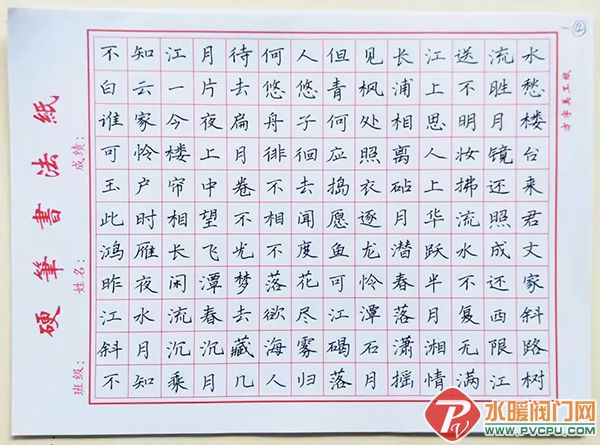 不知江月待何人但见长江送流水
白云一片去悠悠青枫浦上不胜愁
谁家今夜扁舟子何处相思明月楼
可怜楼上月徘徊应照离人妆镜台
玉户帘中卷不去捣衣砧上拂还来
此时相望不相闻愿逐月华流照君
鸿雁长飞光不度鱼龙潜跃水成文
昨夜闲潭梦落花可怜春半不还家
江水流春去欲尽江潭落月复西斜
斜月沉沉藏海雾碣石潇湘无限路
不知乘月几人归落月摇情满江树
硬筆書法紙
班级: 姓名: 成绩:
水暖阀门网
WWW.PVCPU.COM